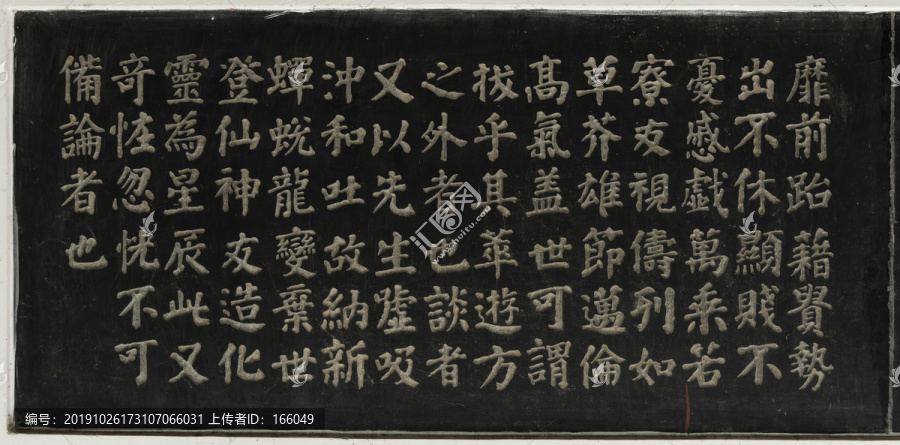 靡前跆藉貴勢
出不休顯賤不
憂慼戲萬乘若
寮友視儔列如
草芥雄節邁倫
高氣盖世可謂
拔乎其萃遊方
之外者已談者
又以先生噓吸
沖和吐故納新
蟬蛻龍變棄世
登仙神友造化
靈為星辰此又
奇恠忽恍不可
備論者也
汇图网
www.huitu.com
编号：20191026173107066031 上传者ID：166049